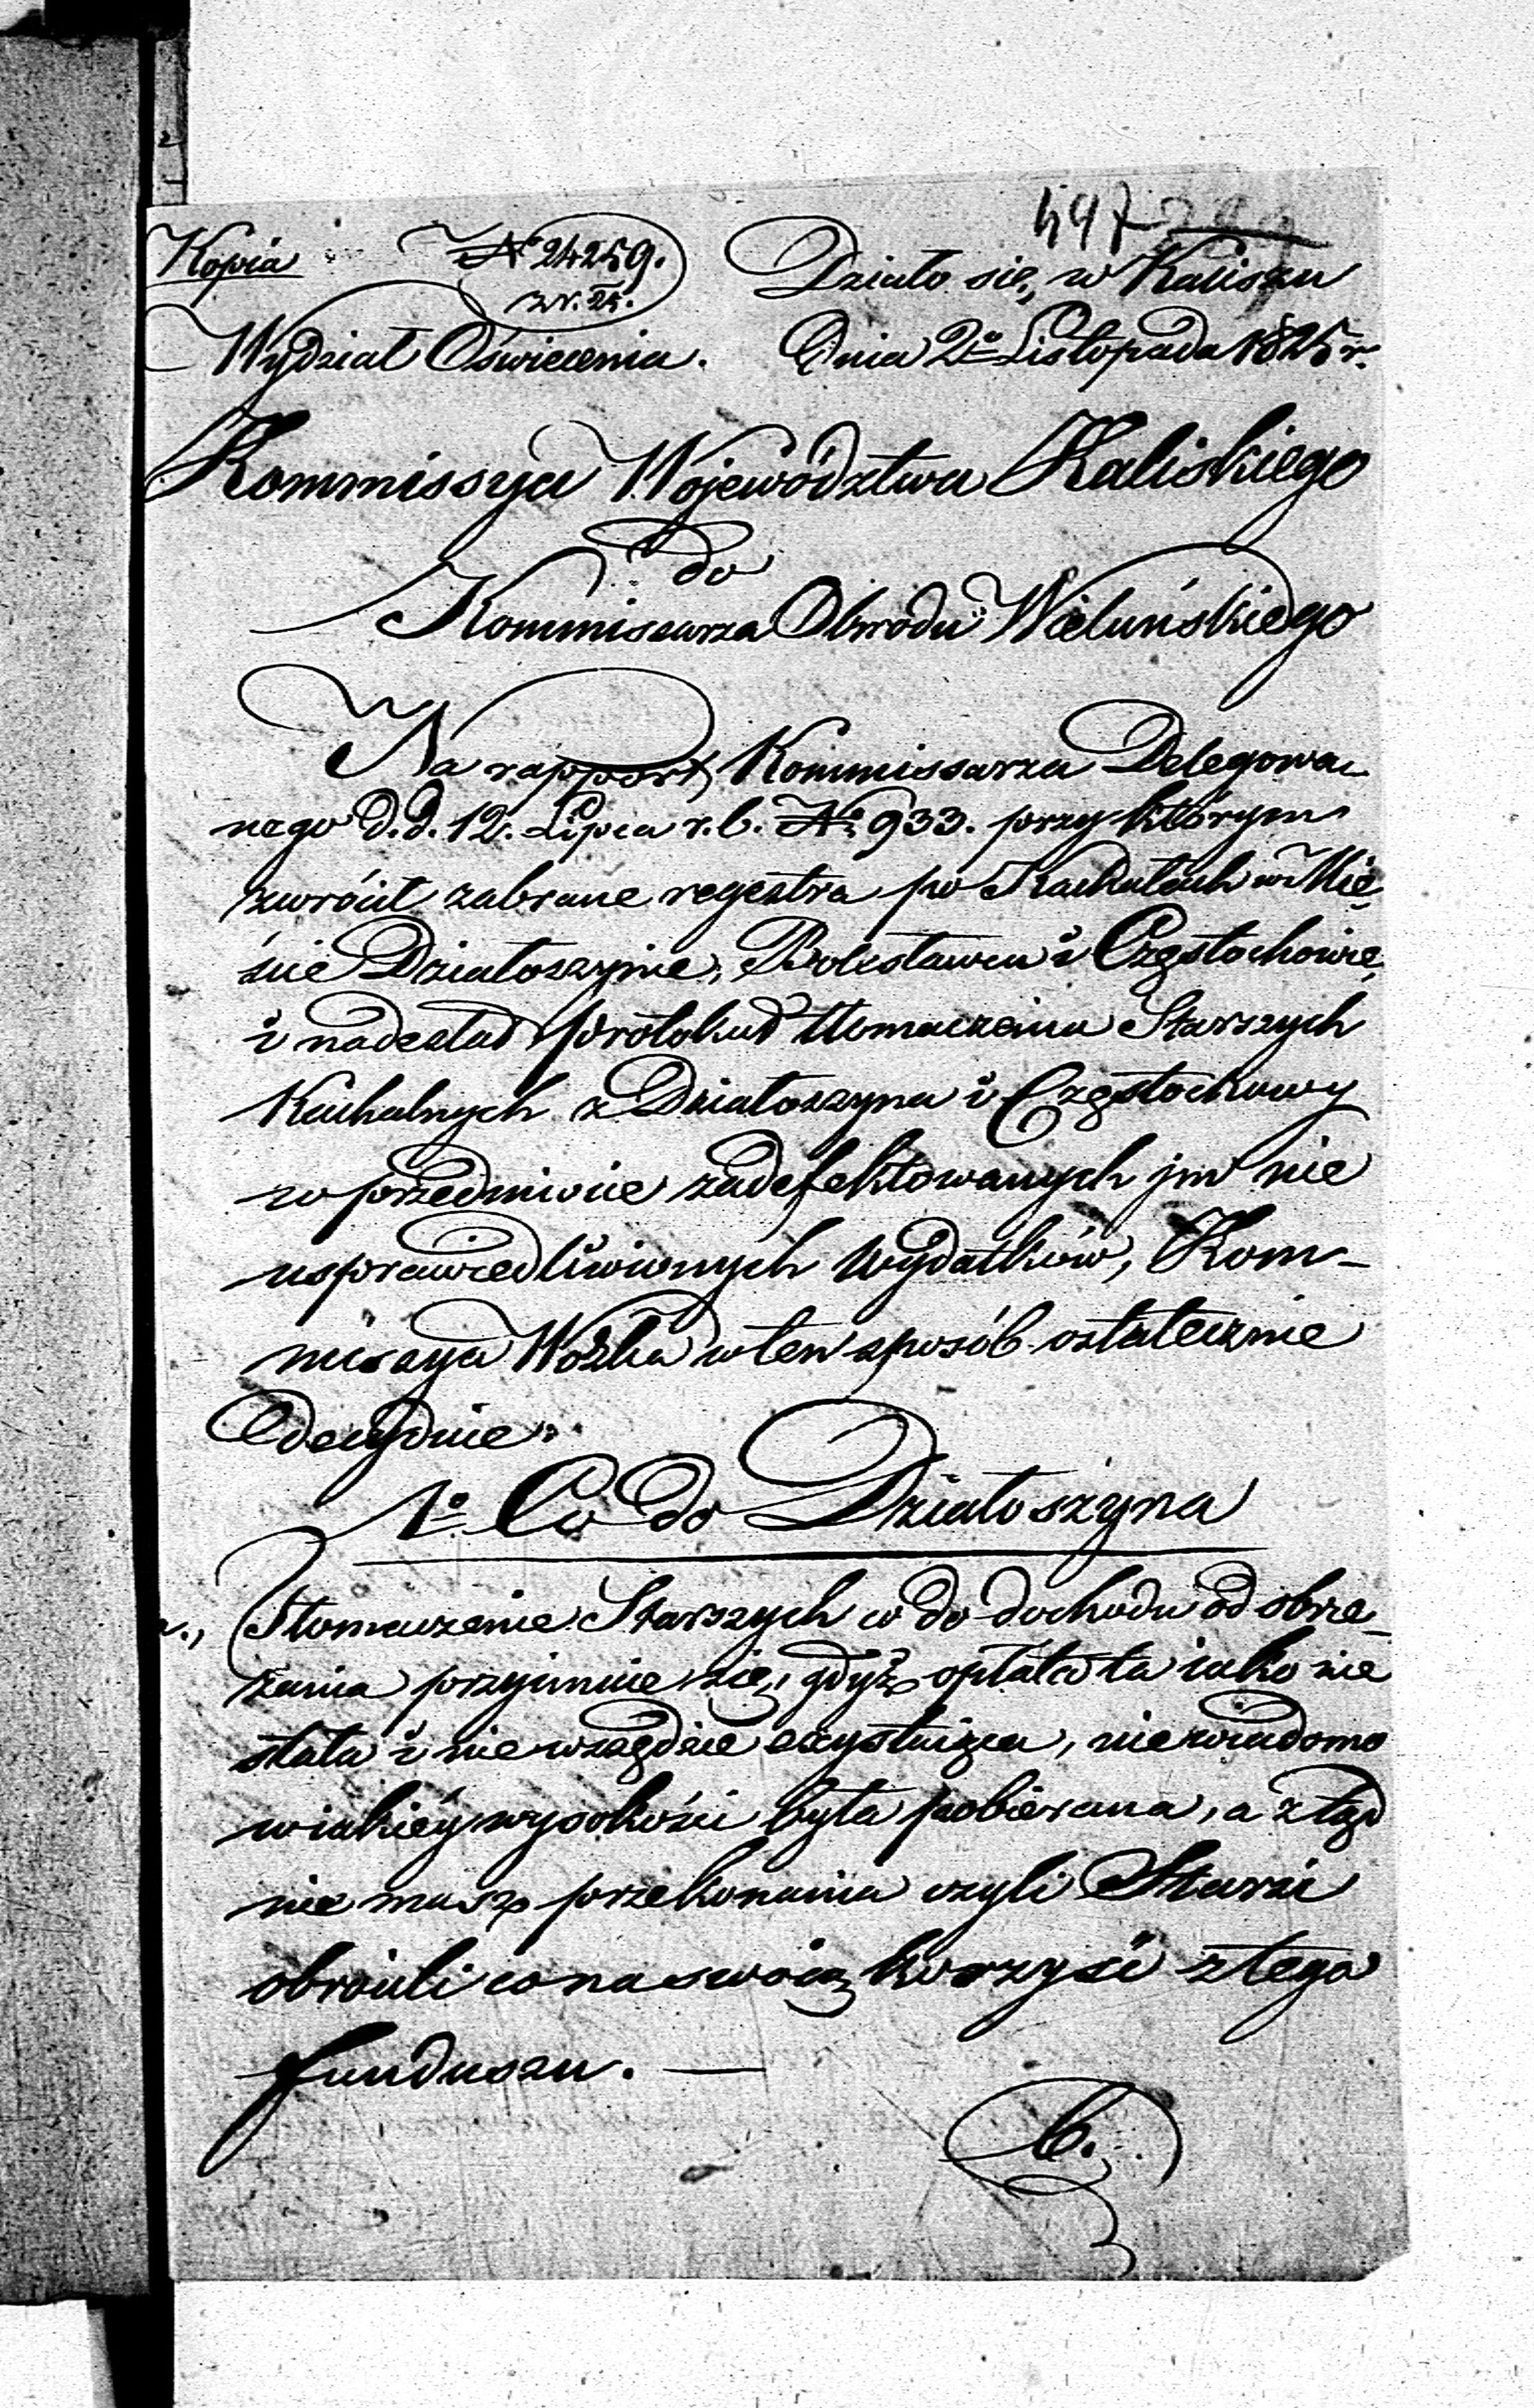 497
Kopia N 24259. Działo się, w Kaliszu
Wydział Oświecenia. Dnia 2º Listopada 1825 r.
Kommissya Województwa Kaliskiego
do
Kommissarza Obwodu Wieluńskiego
Na rapport Kommissarza Delegowa-
nego d.d. 12. Lipca r.b. Nº 933. przy którym
zwrócił zabrane regestra po Kachałach w Mie-
ście Działoszynie, Bolesławcu i Częstochowie,
i nadesłał protokuł tłomaczenia Starszych
Kachalnych z Działoszyna i Częstochowy
w przedmiocie zadefektowanych jm nie
usprawiedliwionych wydatków, Kom-
missya Wdzka w ten sposób ostatecznie
decyduie:
1º Co do Działoszyna
a., Tłomaczenie Starszych co do dochodu od obrze-
zania przyjmuie się, gdyż opłata ta iako nie
stała i nie wszędzie exystuiąca, niewiadomo
w iakiéy wysokości była pobierana, a ztąd
nie masz przekonania czyli Starsi
obrócili co na swoią korzyść z tego
funduszu. —
b.